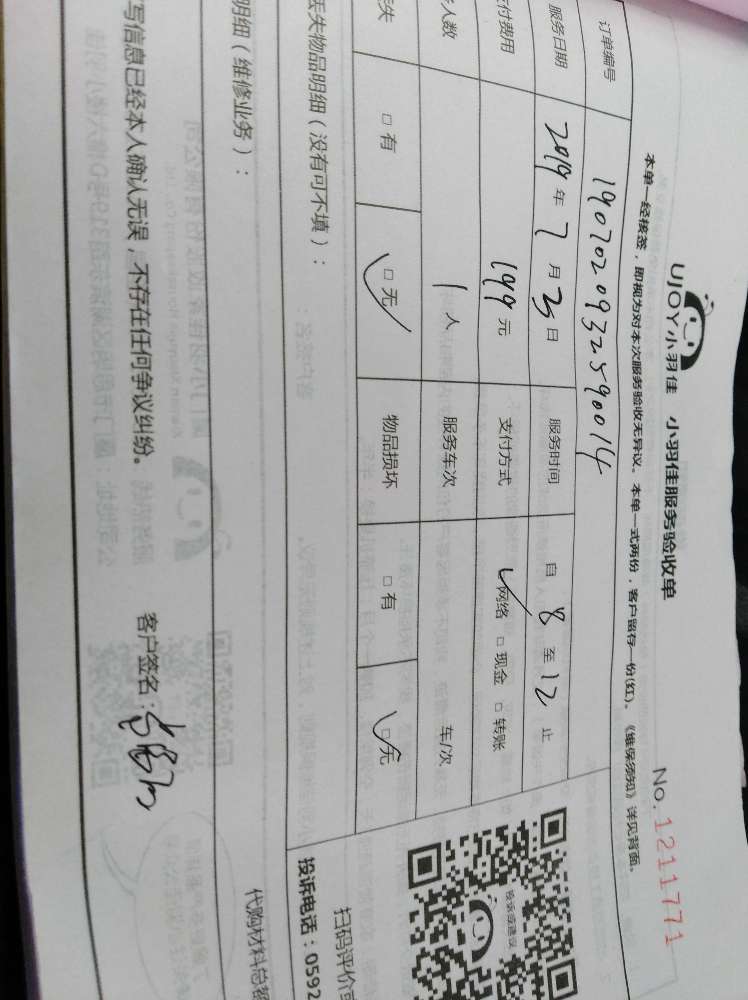 UJOY小羽佳 小羽佳服务验收单 No.1211771
本单一经核签，即视为对本次服务验收无异议。本单一式两份，客户留存一份(红)。《维保须知》详见背面。
订单编号 1907020932590014
服务日期 2019年7月3日 服务时间 自8至12止
付费用 199元 支付方式 网络 □现金 □转账
人数 1人 服务车次 车/次
失 □有 □无 物品损坏 □有 □无
丢失物品明细（没有可不填）：
明细（维修业务）：
写信息已经本人确认无误，不存在任何争议纠纷。 客户签名：
投诉或建议
扫码评价
投诉电话：0592
代购材料总